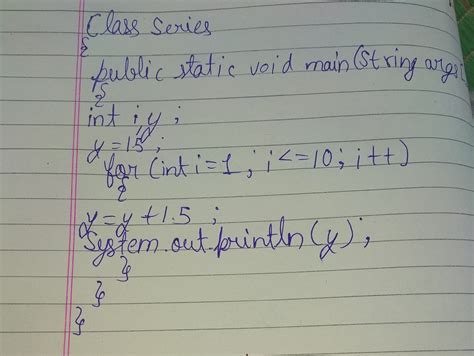 Class Series
{
public static void main(String args[
{
int i,y;
y=15;
for (int i=1; i<=10; i++)
{
y=y+1.5 ;
System.out.println(y);
}
}
}